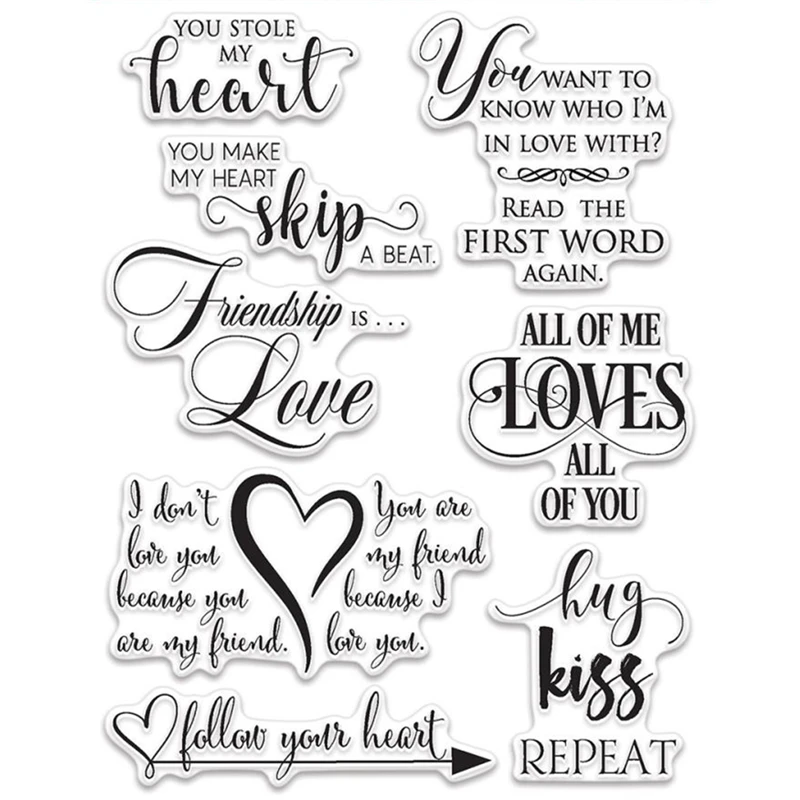 YOU STOLE
MY
heart
You WANT TO
KNOW WHO I'M
IN LOVE WITH?
READ THE
FIRST WORD
AGAIN.
YOU MAKE
MY HEART
skip
A BEAT.
Friendship IS . . .
Love
ALL OF ME
LOVES
ALL
OF YOU
I don't
love you
because you
are my friend.
You are
my friend
because I
love you.
hug
kiss
REPEAT
follow your heart